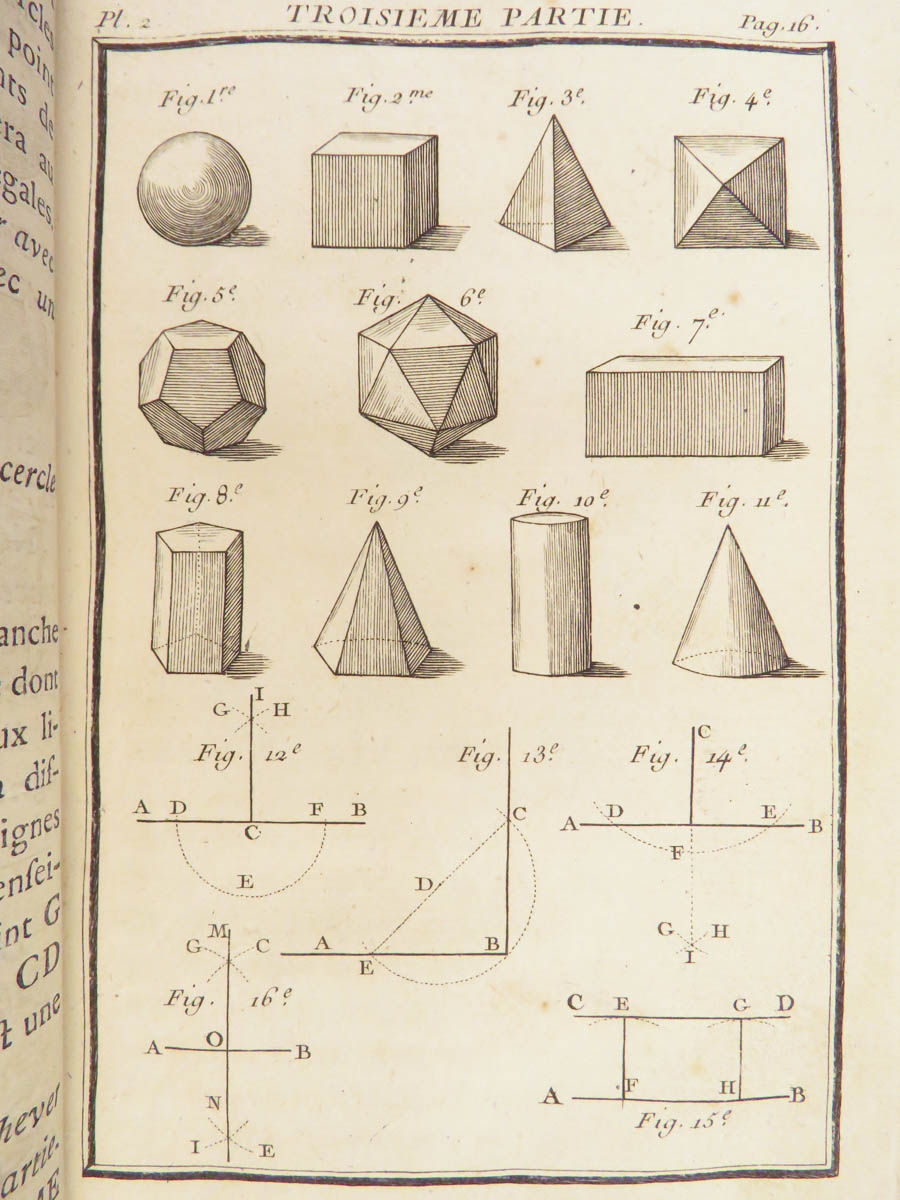 Pl. 2 TROISIEME PARTIE. Pag. 16.
Fig. 1re Fig. 2.me Fig. 3e. Fig. 4e.
Fig. 5e. Fig. 6e. Fig. 7e.
Fig. 8.e Fig. 9e. Fig. 10e. Fig. 11e.
I
G H
Fig. 12e.
A D F B
C
E
Fig. 13e.
C
D
A B
E
C
Fig. 14e.
D E
A B
F
G H
I
M
G C
Fig. 16e.
A O B
N
I E
C E G D
A F H B
Fig. 15e.
point
nts de
era au
egales.
avec
ec un
cercle
anche
dont
ux li-
dif-
ignes
enſei-
int G
CD
t une
hever
artie.
ME